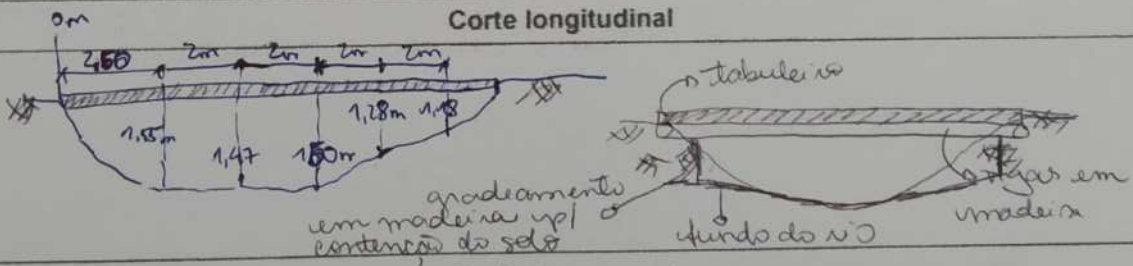 Corte longitudinal
0m
2m 2m 2m 2m
1,55m 1,47 1,50m 1,28m 1,18
tabuleiro
gradeamento
em madeira p/
contenção do solo
fundo do rio
vigas em
madeira